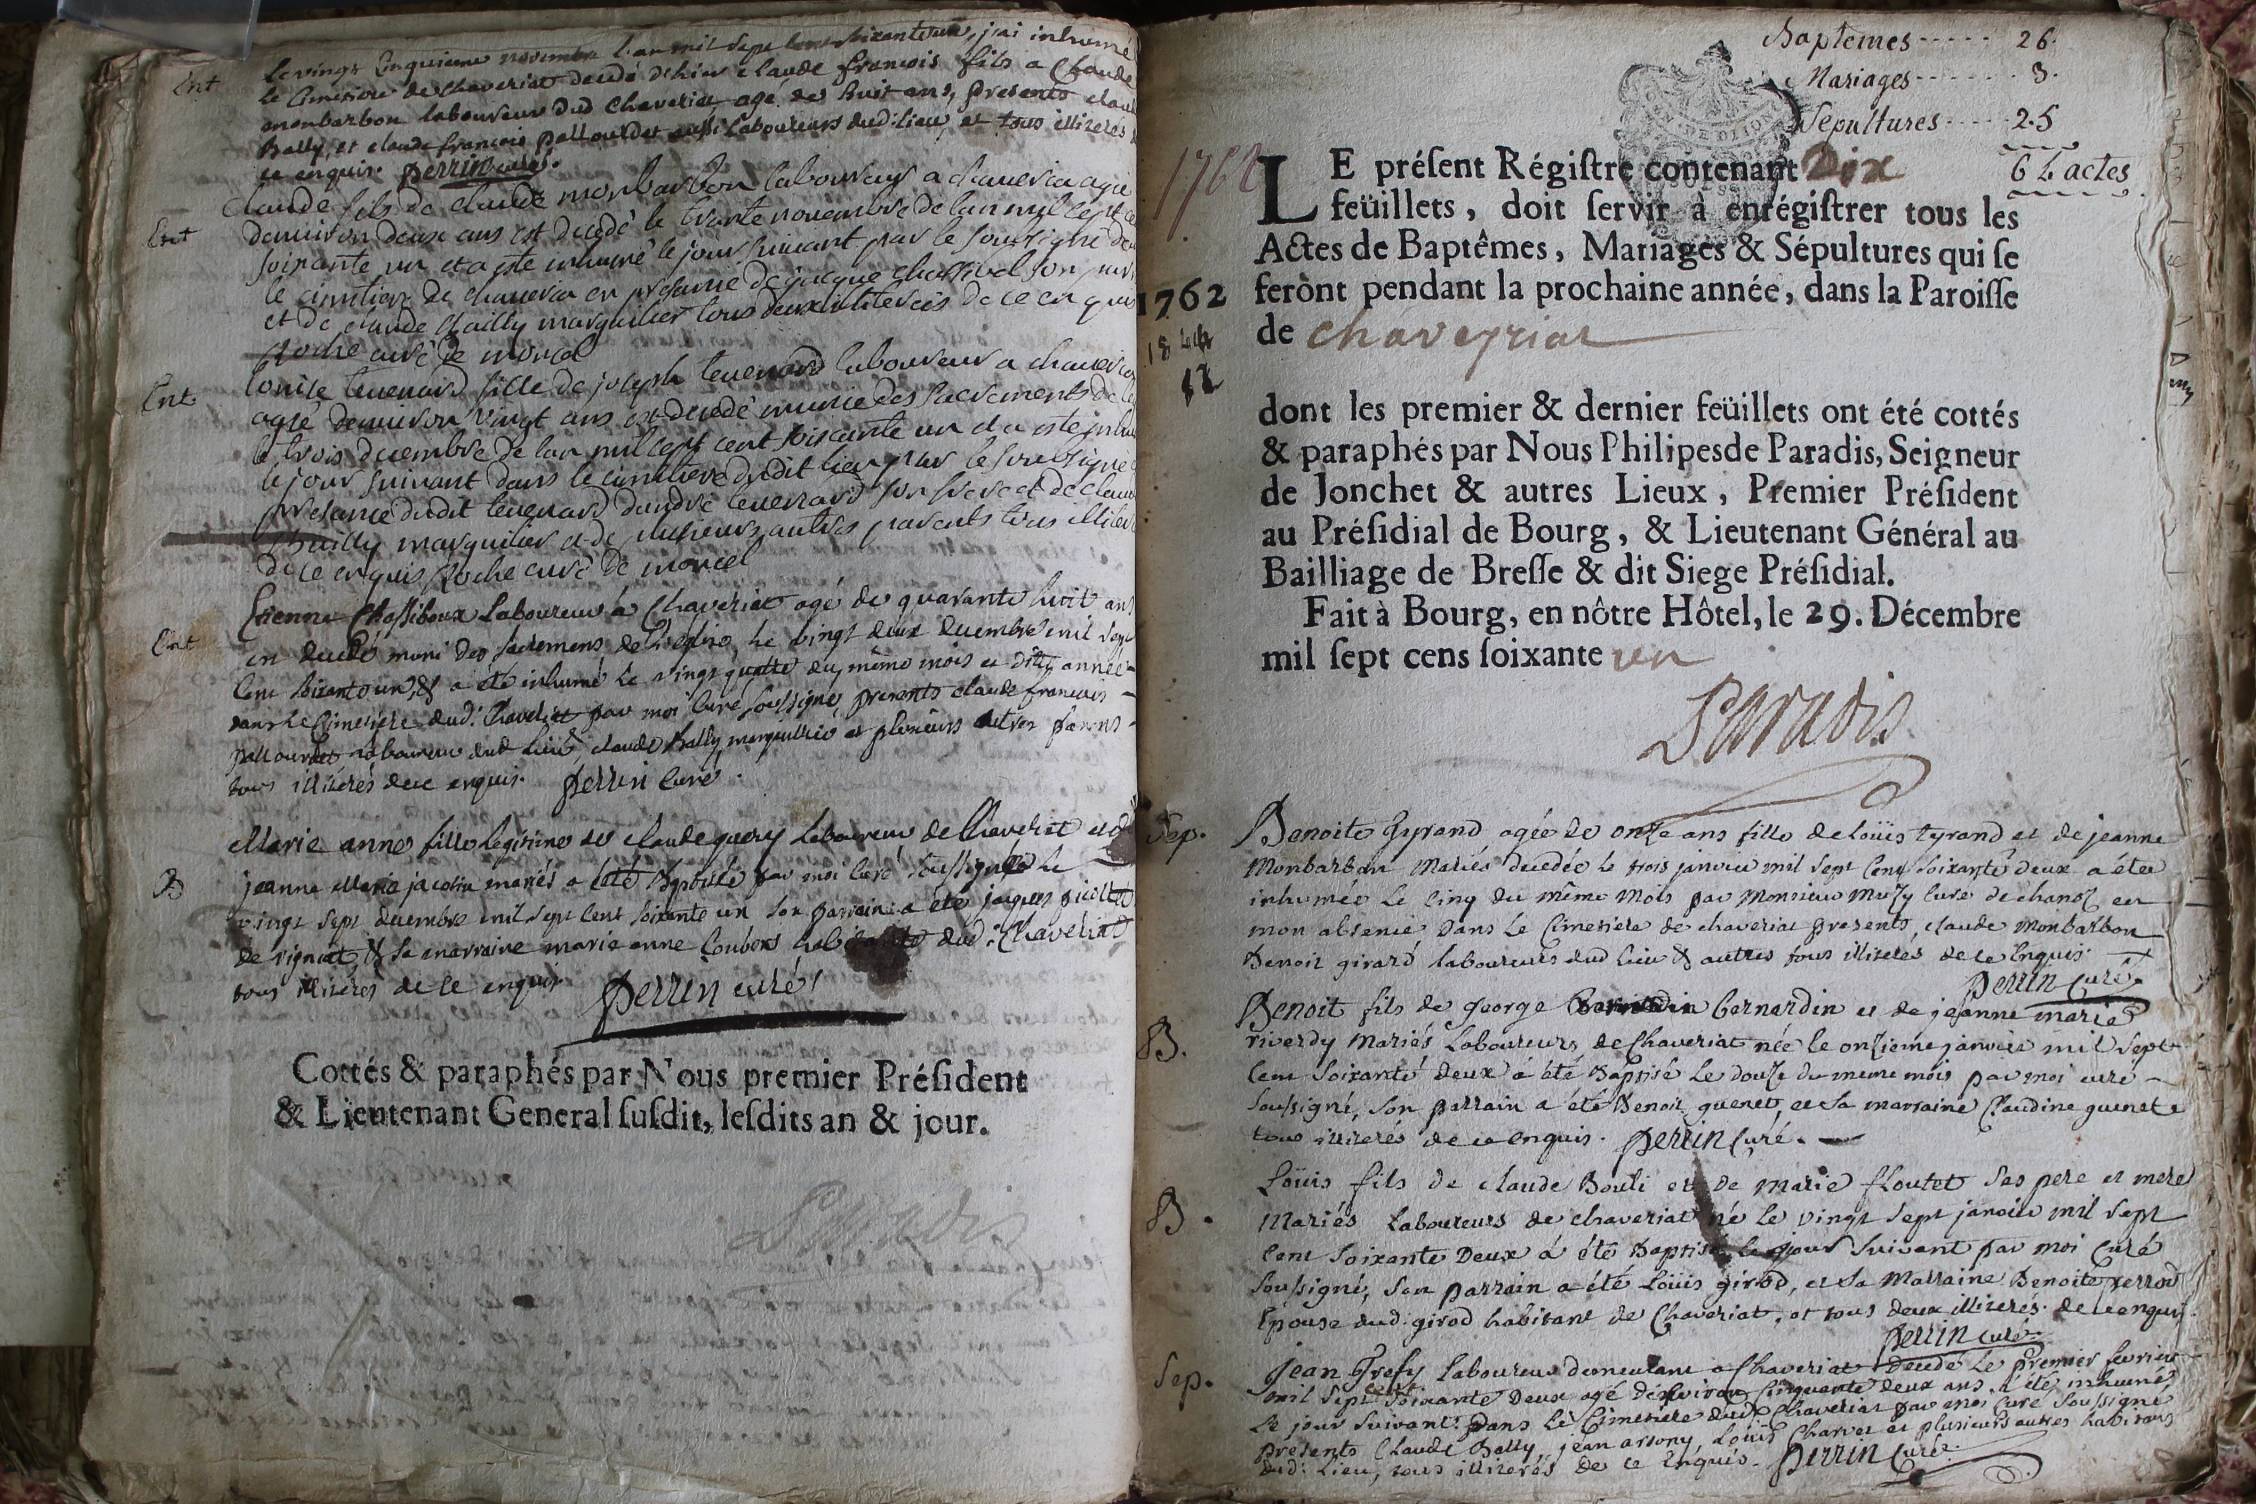 Le vingt cinquieme novembre l'an mil sept cent soixante un, j'ai inhumé
Ent
le Cimetiere de Chaveriat decedé d'hier Claude francois fils a Claude
monbarbon laboureur dud Chaveriat, agé de huit ans, presents claude
Bally, et claude francois pallourdet aussi laboureurs dud: lieu, et tous illiterés
ce enquis. perrin curé.
Claude fils de claude monbarbon laboureur a chaveria agé
Ent
denuiron deux ans est decedé le trante novembre de lan myl sept
soixante un et a esté inhumé le jour suivant par le soussigné
le cimetiere de chaveria en presance de jacque
et de claude Bailly marguilier tous deux illiterés de ce enquis
Roche curé de moncel
Ent
Louise tevenard fille de joseph tevenard laboureur a chaveria
agée denuiron vingt ans est decedé munie des sacrements de
le trois decembre de lan mil cept cent soiscante un et a esté
le jour suivant dans le cimetiere dudit lieu par le soussigné
presance dudit tevenard dandré tevenard son frere et de claude
Bailly marguilier et de plusieurs autres parents tous
de ce enquis Roche curé de moncel
Etienne Chossiboux Laboureur à Chaveriat agé de quarante huit ans
Ent
en decedé muni des sacremens de l'eglise, le vingt deux decembre mil sept
cent soixante un, & a été inhumé le vingt quatre du même mois et dite année
dans le Cimetiere dud: Chaveriat par moi curé soussigné, presents claude francois
pallourdet laboureur dud lieu claude Bally marguillier et plusieurs autres parens
tous illiterés de ce enquis. perrin curé.
Marie anne fille legitime de claude guery laboureur de Chaveriat et de
B
jeanne Marie jacotin mariés a été Baptisée par moi curé soussigné le
vingt sept decembre mil sept cent soixante un son parrain a été jaques
de vigniat, & sa marraine marie anne habitante dud: Chaveriat
tous illiterés de ce enquis
perrin curé
Cottés & paraphés par Nous premier Président
& Lieutenant General susdit, lesdits an & jour.
Paradis
Baptêmes ..... 26.
Mariages ...... 3.
Sépultures ..... 25
6 4 actes
1762
LE présent Régistre contenant Dix
feüillets, doit servir à enrégistrer tous les
Actes de Baptêmes, Mariages & Sépultures qui se
feront pendant la prochaine année, dans la Paroisse
1762
de chaveyriat
dont les premier & dernier feüillets ont été cottés
& paraphés par Nous Philipes de Paradis, Seigneur
de Jonchet & autres Lieux, Premier Président
au Présidial de Bourg, & Lieutenant Général au
Bailliage de Bresse & dit Siege Présidial.
Fait à Bourg, en nôtre Hôtel, le 29. Décembre
mil sept cens soixante un
Paradis
Sep.
Benoite tyrand agée de onze ans fille de Loüis tyrand et de jeanne
Monbarbon Mariés decedée le trois janvier mil sept cent soixante deux a étée
inhumée le cinq du même mois par Monsieur Muzy curé de chanoz en
mon absence dans le Cimetiere de chaveriat presents, claude Monbarbon
Benoit girard laboureurs dud lieu & autres tous illiterés de ce Enquis
perrin curé.
Benoit fils de george bernardin et de jeanne marie
B.
riverdy Mariés Laboureurs de Chaveriat née le onzieme janvier mil sept
cent soixante deux a été Baptisé le douze du meme mois par moi curé
soussigné, son parrain a été Benoit quenet, et sa marraine Claudine quenet
tous illiterés de ce enquis. perrin curé.
Loüis fils de claude Bouli et de marie floutet ses pere et mere
B.
Mariés Laboureurs de chaveriat né le vingt sept janvier mil sept
cent soixante Deux a été Baptisé le jour suivant par moi Curé
soussigné, son parrain a été Loüis girod, et sa Marraine Benoite perrod
Epouse dud: girod habitant de Chaveriat, et tous deux illiterés de ce enquis
perrin curé.
Sep.
Jean Trefy Laboureur demeurant a Chaveriat decedé Le Premier fevrier
mil sept cent soixante Deux agé d'environ cinquante deux ans, a été inhumé
Le jour suivant dans le Cimetiere dud: Chaveriat par moi Curé soussigné
presents Claude Bally, jean arsony, Loüis Charvet et plusieurs autres habitans
dud: Lieu, tous illiterés de ce Enquis. perrin curé.